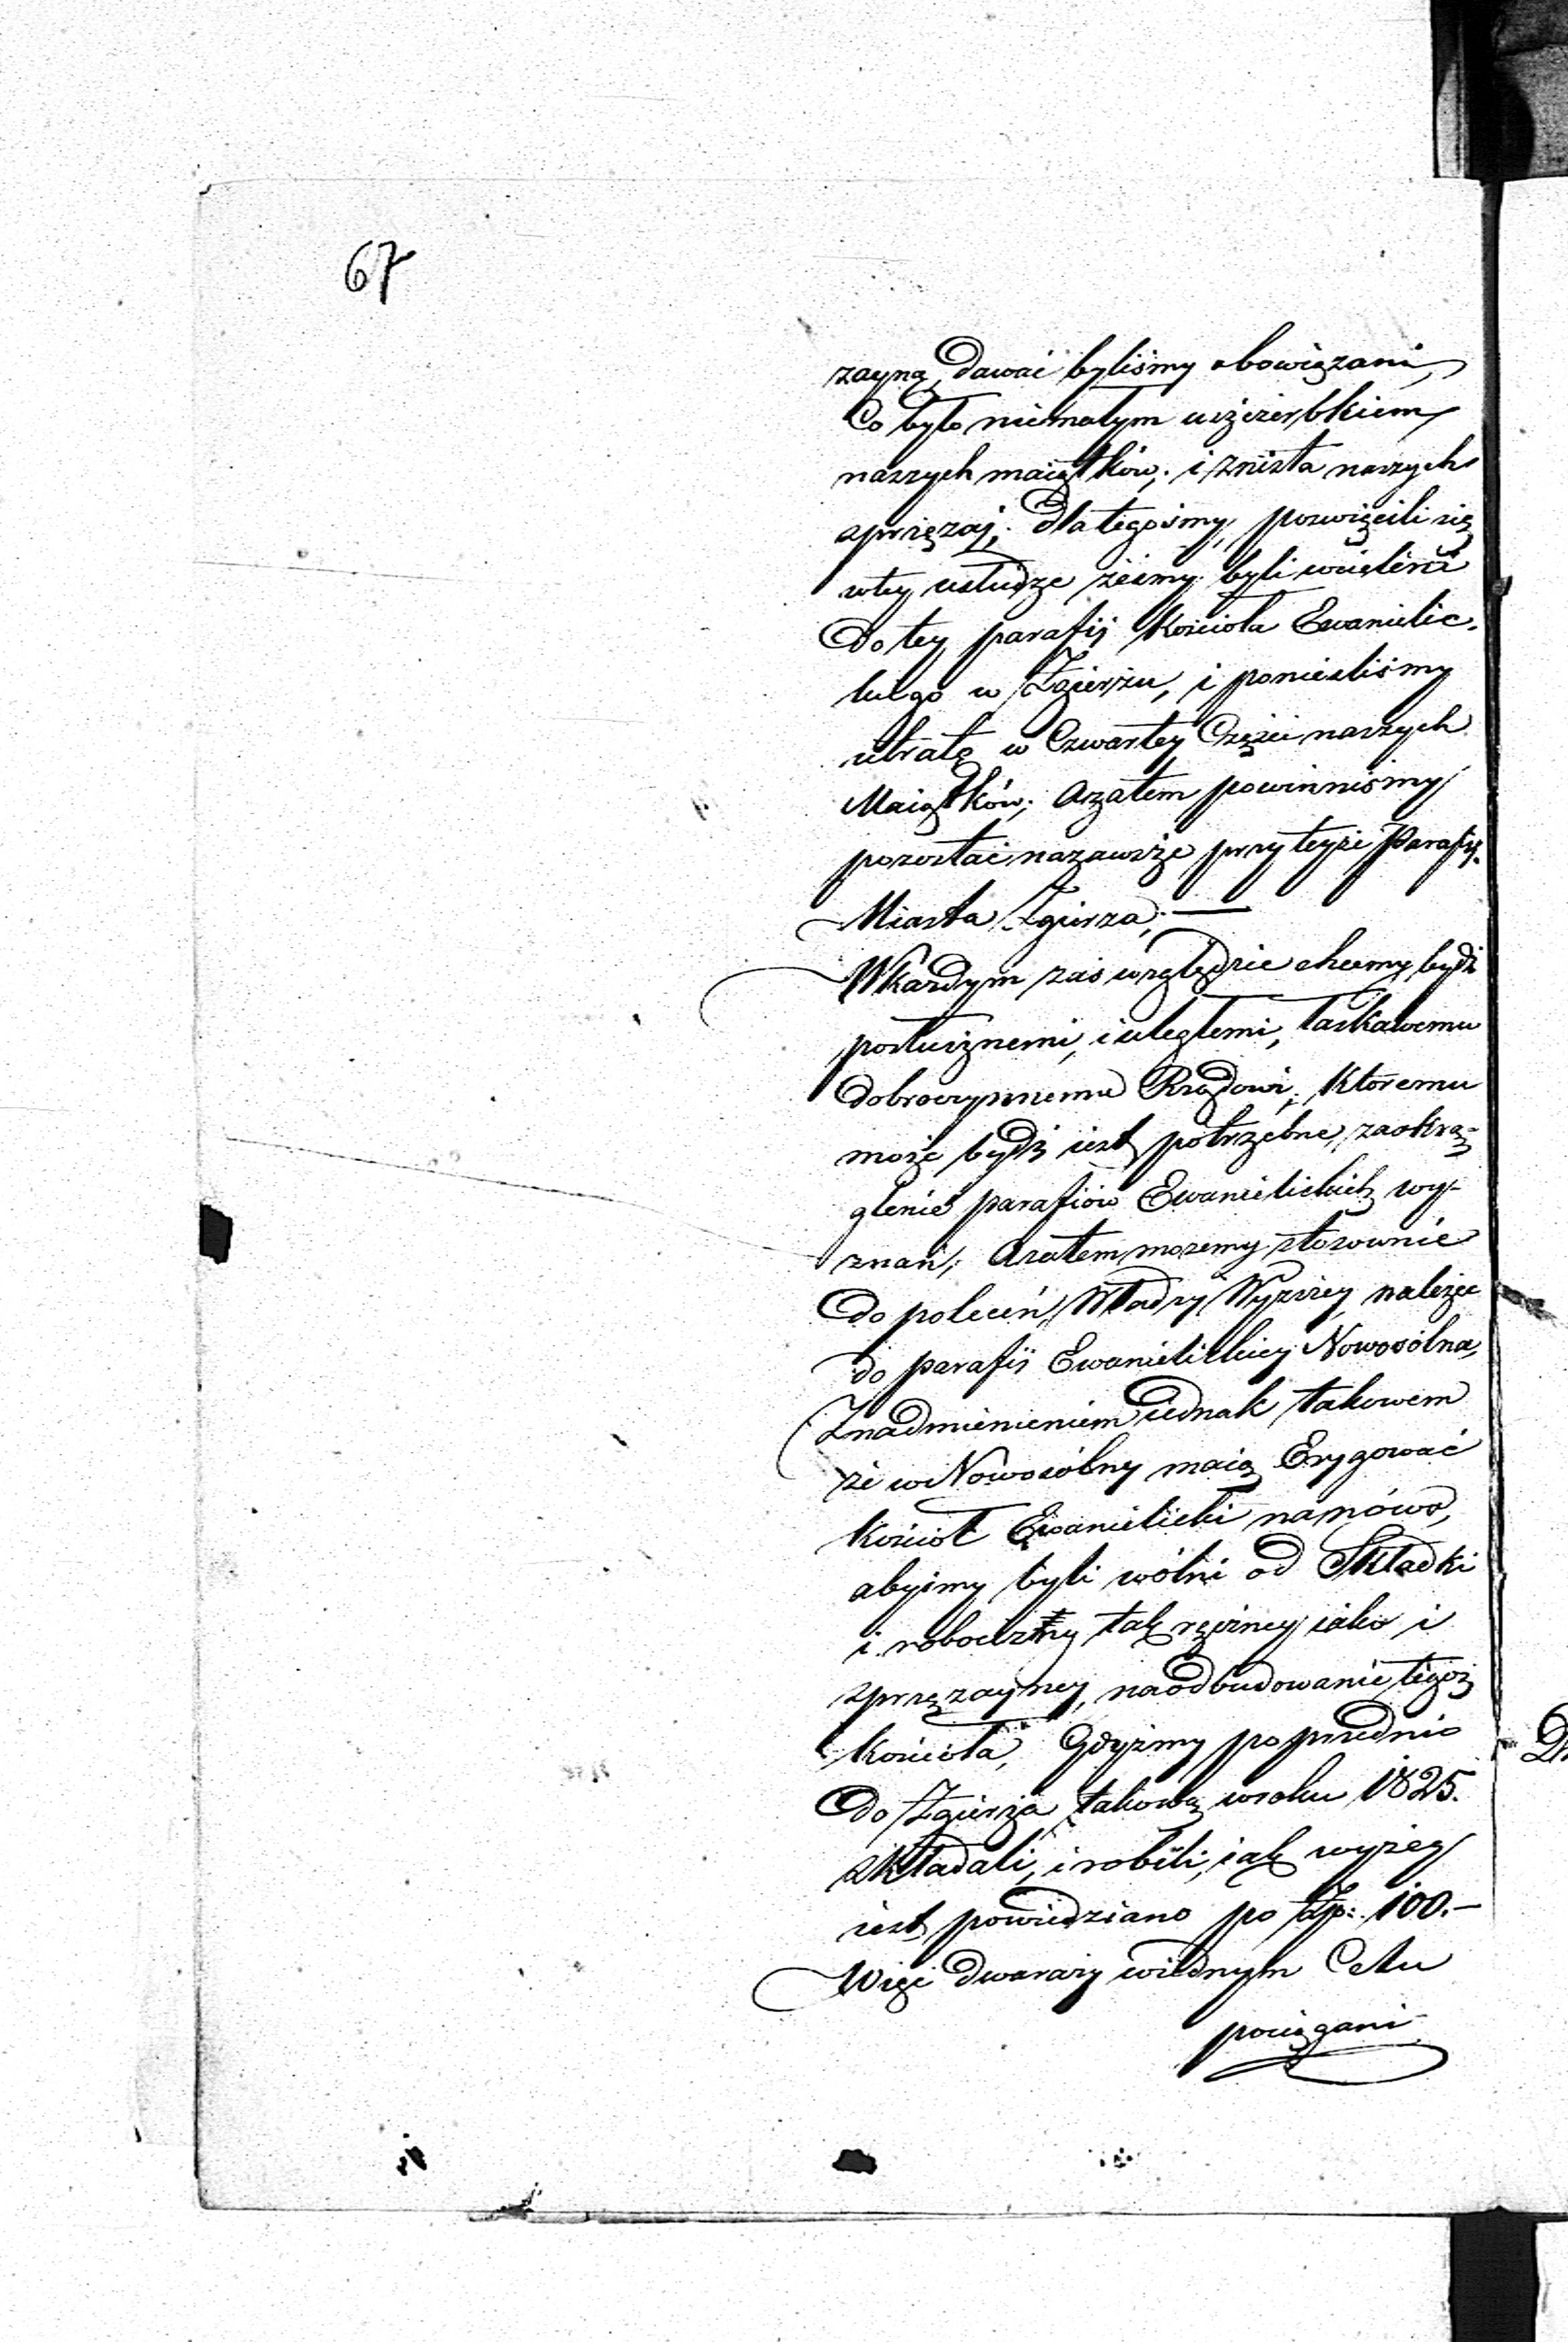 67
zayną, dawać byliśmy obowiązani,
Co było niemałym uszczerbkiem
naszych maiątków; i zniszła naszych
sprzężaj; Dlategośmy, poswięcili się
wtey usłudze żeśmy byli wcieleni
Do tey parafij Kościoła Ewanielic-
kiego w Zgierżu, i ponieśliśmy
utratę w Czwartey Części naszych
Maiątków; Azatem powinniśmy
pozostać nazawsże przy teyże Parafij.
Miasta Zgierza; —
Wkażdym zaś względzie chcemy bydź
posłusznemi, i uległemi, łaskawemu
dobroczynnemu Rządowi; któremu
może bydź iest potrzebne, zaokrą-
glenie parafiów Ewanielickich wy-
znań; Azatem możemy stosownie
Do poleceń Władzy Wyższey, należec
do parafij Ewanielickiey Nowosólna,
Znadmienieniem iednak takowem
że w Nowosólny maią Erygować
Kościoł Ewanielicki nanówo,
abyśmy byli wólni od Składki
i robocizny tak ręczney iako i
sprzężayney, naodbudowanie tegoż
Kościoła, Gdyżmy poprzednio
Do Zgierża takową wroku 1825.
składali, i robili, iak wyżey
iest powiedziano po złp: 100.—
Więc dwarazy wiednym Celu
pociągani